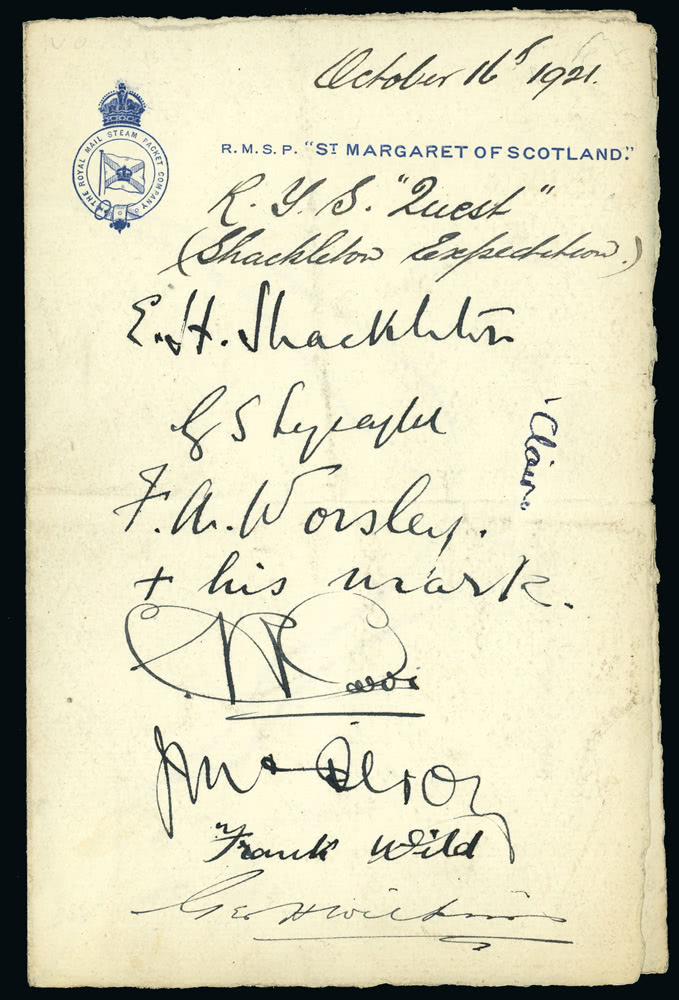 October 16th 1921.
THE ROYAL MAIL STEAM PACKET COMPANY
R.M.S.P. "ST MARGARET OF SCOTLAND."
R. Y. S. "Quest"
(Shackleton Expedition.)
E. H. Shackleton
G S Lysaght
F. A. Worsley.
+ his mark.
C R Carr
J A McIlroy
"Frank Wild
Geo H Wilkins